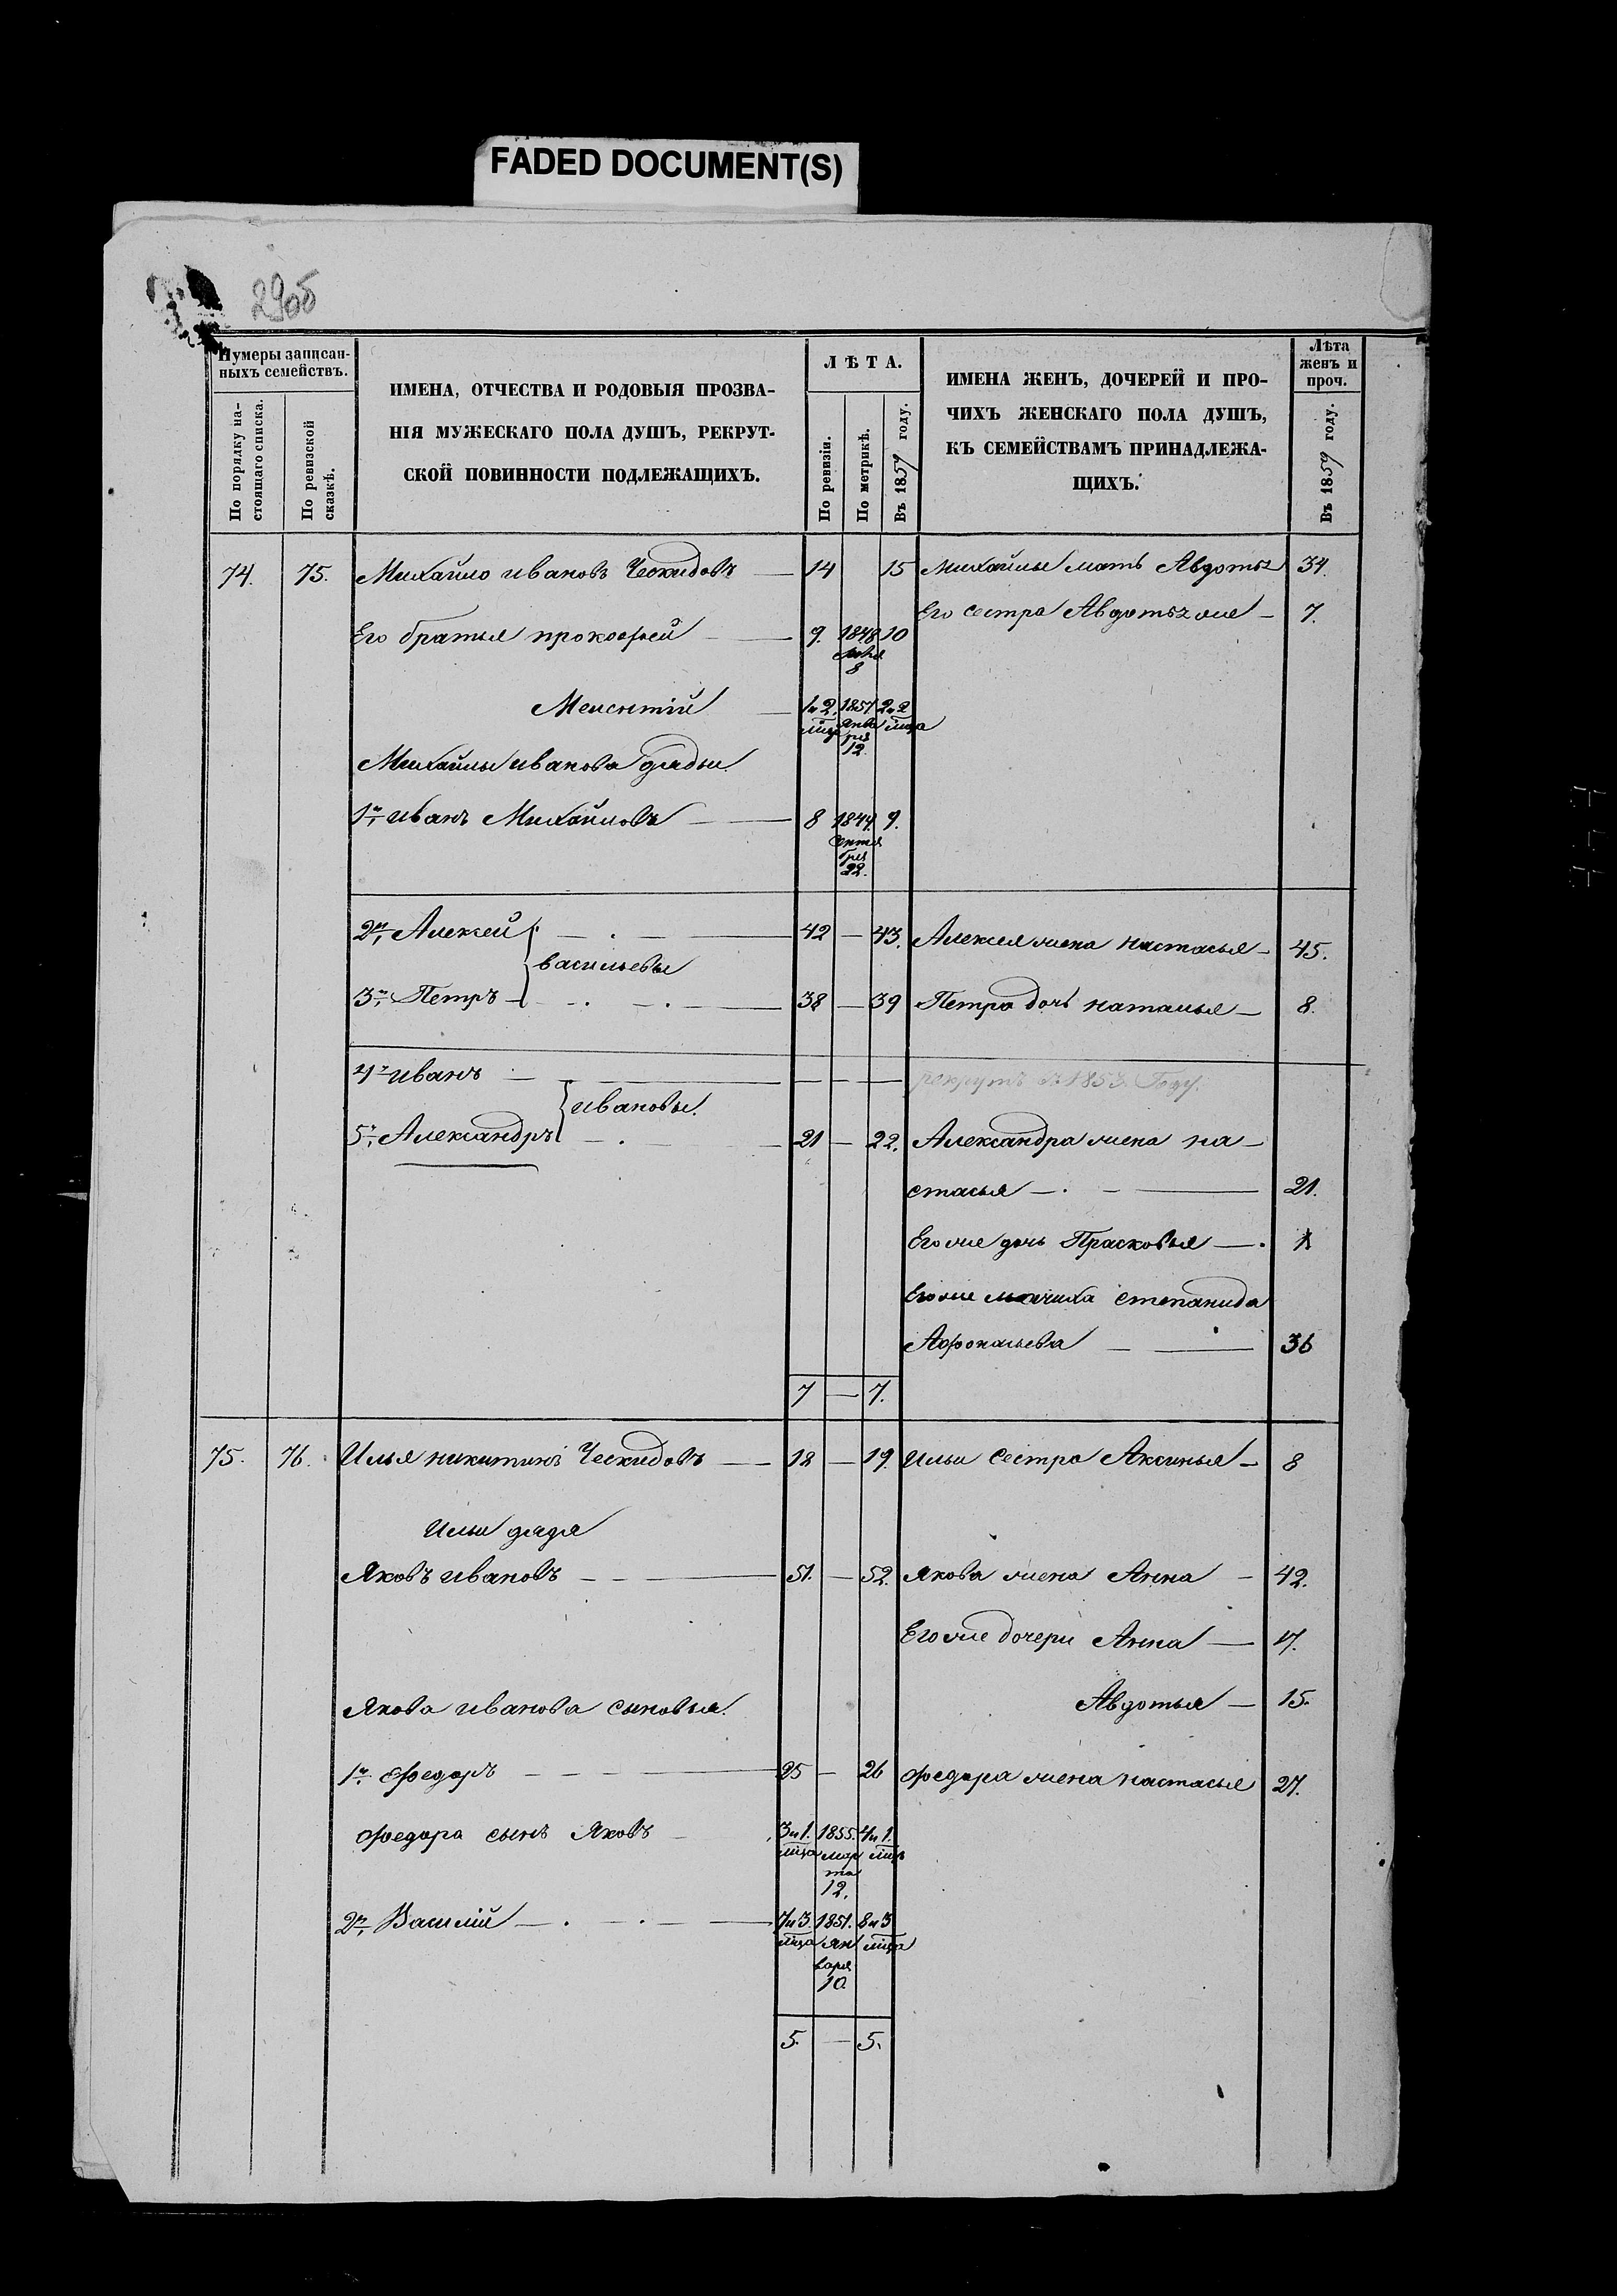 FADED DOCUMENT(S)
Нумеры записан-
ныхъ семействъ.
По порядку на-
стоящаго списка.
По ревизской
сказкѣ.
ИМЕНА, ОТЧЕСТВА И РОДОВЫЯ ПРОЗВА-
НІЯ МУЖЕСКАГО ПОЛА ДУШЪ, РЕКРУТ-
СКОЙ ПОВИННОСТИ ПОДЛЕЖАЩИХЪ.
ЛѢТА.
По ревизіи.
По метрикѣ.
Въ 1859 году.
ИМЕНА ЖЕНЪ, ДОЧЕРЕЙ И ПРО-
ЧИХЪ ЖЕНСКАГО ПОЛА ДУШЪ,
КЪ СЕМЕЙСТВАМЪ ПРИНАДЛЕЖА-
ЩИХЪ.
Лѣта
женъ и
проч.
Въ 1859 году.
74. 75. Михайло ивановъ Ческидовъ — 14 15 михайлы мать Авдотья 34.
Его сестра Авдотья же — 7.
Его братья прокофей — 9. 1848 10
8
Мелентій — 1и2 1851 2и2
мца Янва мца
ря
12.
Михайлы иванова дяди.
1й иванъ Михайловъ — 8 1844 9.
Сентя
бря
22.
2й, Алексей — 42 — 43. Алексея жена настасья — 45.
васильевы
3й, Петръ — 38 — 39 Петра дочь наталья — 8.
4й иванъ — рекрутъ въ 1853. Году.
ивановы.
5й, Александръ — 21 — 22. Александра жена на-
стасья — 21.
Его же дочь Прасковья —
Его же мачиха степанида
Афонасьева — 36
7 — 7.
75. 76. Илья никитинъ Ческидовъ — 18 — 19. ильи сестра Аксинья — 8
ильи дядя
Яковъ ивановъ — 51. — 52. якова жена Анна — 42.
Его же дочери Анна — 17.
Авдотья — 15.
Якова иванова сыновья.
1й. Федоръ — 25 — 26 федора жена настасья 27.
федора сынъ Яковъ — 3и1. 1855. 4и1.
мца мар мцъ
та
12.
2й, Василій — 7и3. 1851. 8и3
мца ян мца
варя
10
5. — 5.